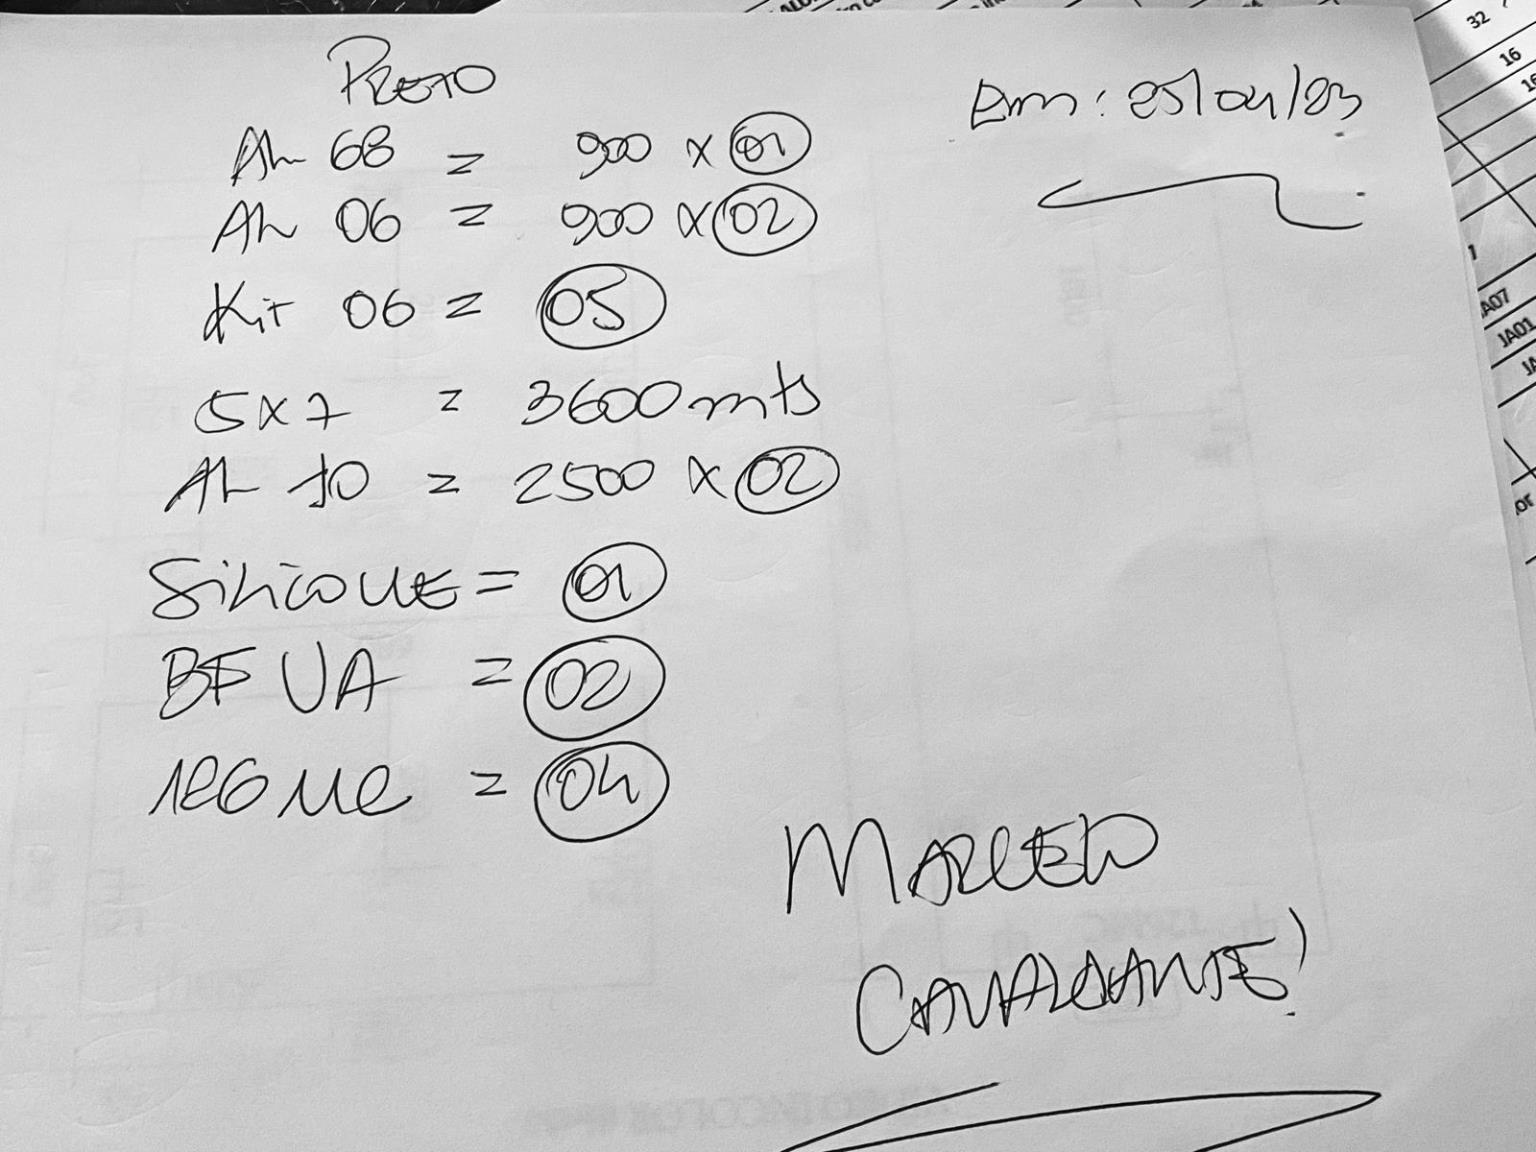 PRETO
Em: 25/04/23
AL 68 = 900 x 01
AL 06 = 900 x 02
Kit 06 = 05
5x7 = 3600 mts
AL 10 = 2500 x 02
Silicone = 01
BF UA = 02
= 04
MARCELO
CAVALCANTE!
32
16
16
1
JA07
JA01
JA